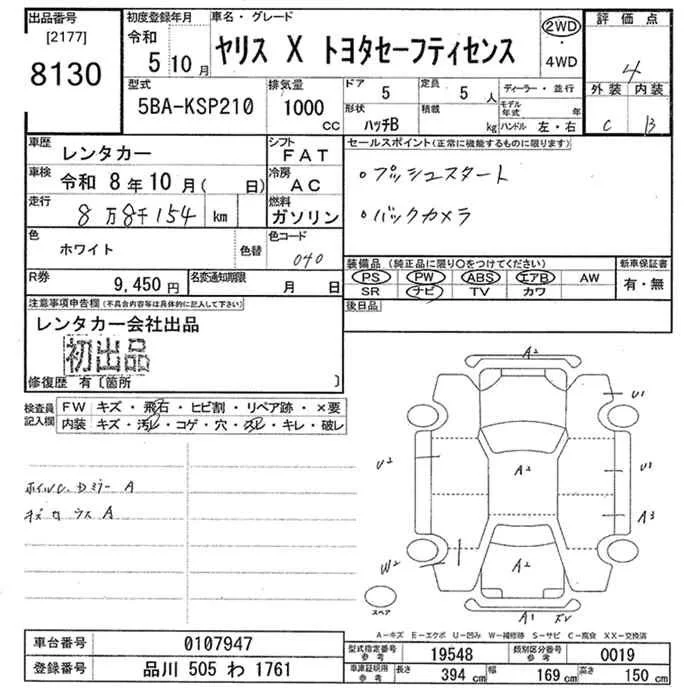 出品番号
[2177]
8130
初度登録年月
令和
5 10月
車名・グレード
ヤリス X トヨタセーフティセンス
2WD
・
4WD
評価点
4
外装 内装
C B
型式
5BA-KSP210
排気量
1000
cc
ドア 5
定員 5 人
形状 ハッチB
積載 kg
ディーラー・並行
モデル年式 年
ハンドル 左・右
車歴
レンタカー
シフト
FAT
車検 令和 8年10月( 日)
冷房
AC
走行 8万8千154 km
燃料
ガソリン
色 ホワイト
色替
色コード
040
R券 9,450円
名変通知期限 月 日
セールスポイント(正常に機能するものに限ります)
・プッシュスタート
・バックカメラ
装備品(純正品に限り○をつけてください)
PS PW ABS エアB AW
SR ナビ TV カワ
新車保証書
有・無
後日品
注意事項申告欄(不具合内容等は具体的に記入して下さい)
レンタカー会社出品
初出品
修復歴 有〔箇所 〕
検査員記入欄
FW キズ・飛石・ヒビ割・リペア跡・×要
内装 キズ・汚レ・コゲ・穴・スレ・キレ・破レ
ホイルC.ドミラーA
キズ A
A2
U1
U2
A2
U1
A3
W2
A2
A1
スペア
A-キズ E-エクボ U-凹み W-補修跡 S-サビ C-腐食 XX-交換済
車台番号 0107947
登録番号 品川 505 わ 1761
型式指定番号参考 19548
類別区分番号参考 0019
車庫証明用参考 長さ 394 cm 幅 169 cm 高さ 150 cm